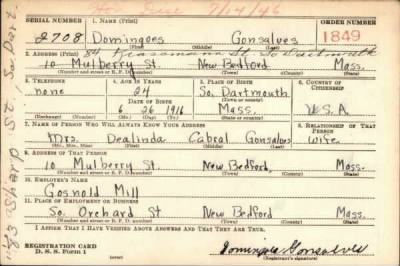 7/14/46
SERIAL NUMBER 1. NAME (Print) ORDER NUMBER
2708 Domingoes Gonsalves 1849
2. ADDRESS (Print) 84 St. So Dartmouth
10 Mulberry St. New Bedford Mass.
3. TELEPHONE 4. AGE IN YEARS 5. PLACE OF BIRTH 6. COUNTRY OF CITIZENSHIP
none 24 So. Dartmouth
DATE OF BIRTH (Town or county)
6 26 1916 Mass. U.S.A.
(Mo.) (Day) (Yr.) (State or country)
7. NAME OF PERSON WHO WILL ALWAYS KNOW YOUR ADDRESS 8. RELATIONSHIP OF THAT PERSON
Mrs. Dealinda Cabral Gonsalves wife
(Mr., Mrs., Miss) (First) (Middle) (Last)
9. ADDRESS OF THAT PERSON
10 Mulberry St. New Bedford, Mass.
(Number and street or R. F. D. number) (Town) (County) (State)
10. EMPLOYER'S NAME
Gosnold Mill
11. PLACE OF EMPLOYMENT OR BUSINESS
So. Orchard St New Bedford Mass.
(Number and street or R. F. D. number) (Town) (County) (State)
I AFFIRM THAT I HAVE VERIFIED ABOVE ANSWERS AND THAT THEY ARE TRUE.
REGISTRATION CARD
D. S. S. Form 1
Domingoes Gonsalves
(Registrant's signature)
St., So. Dart.